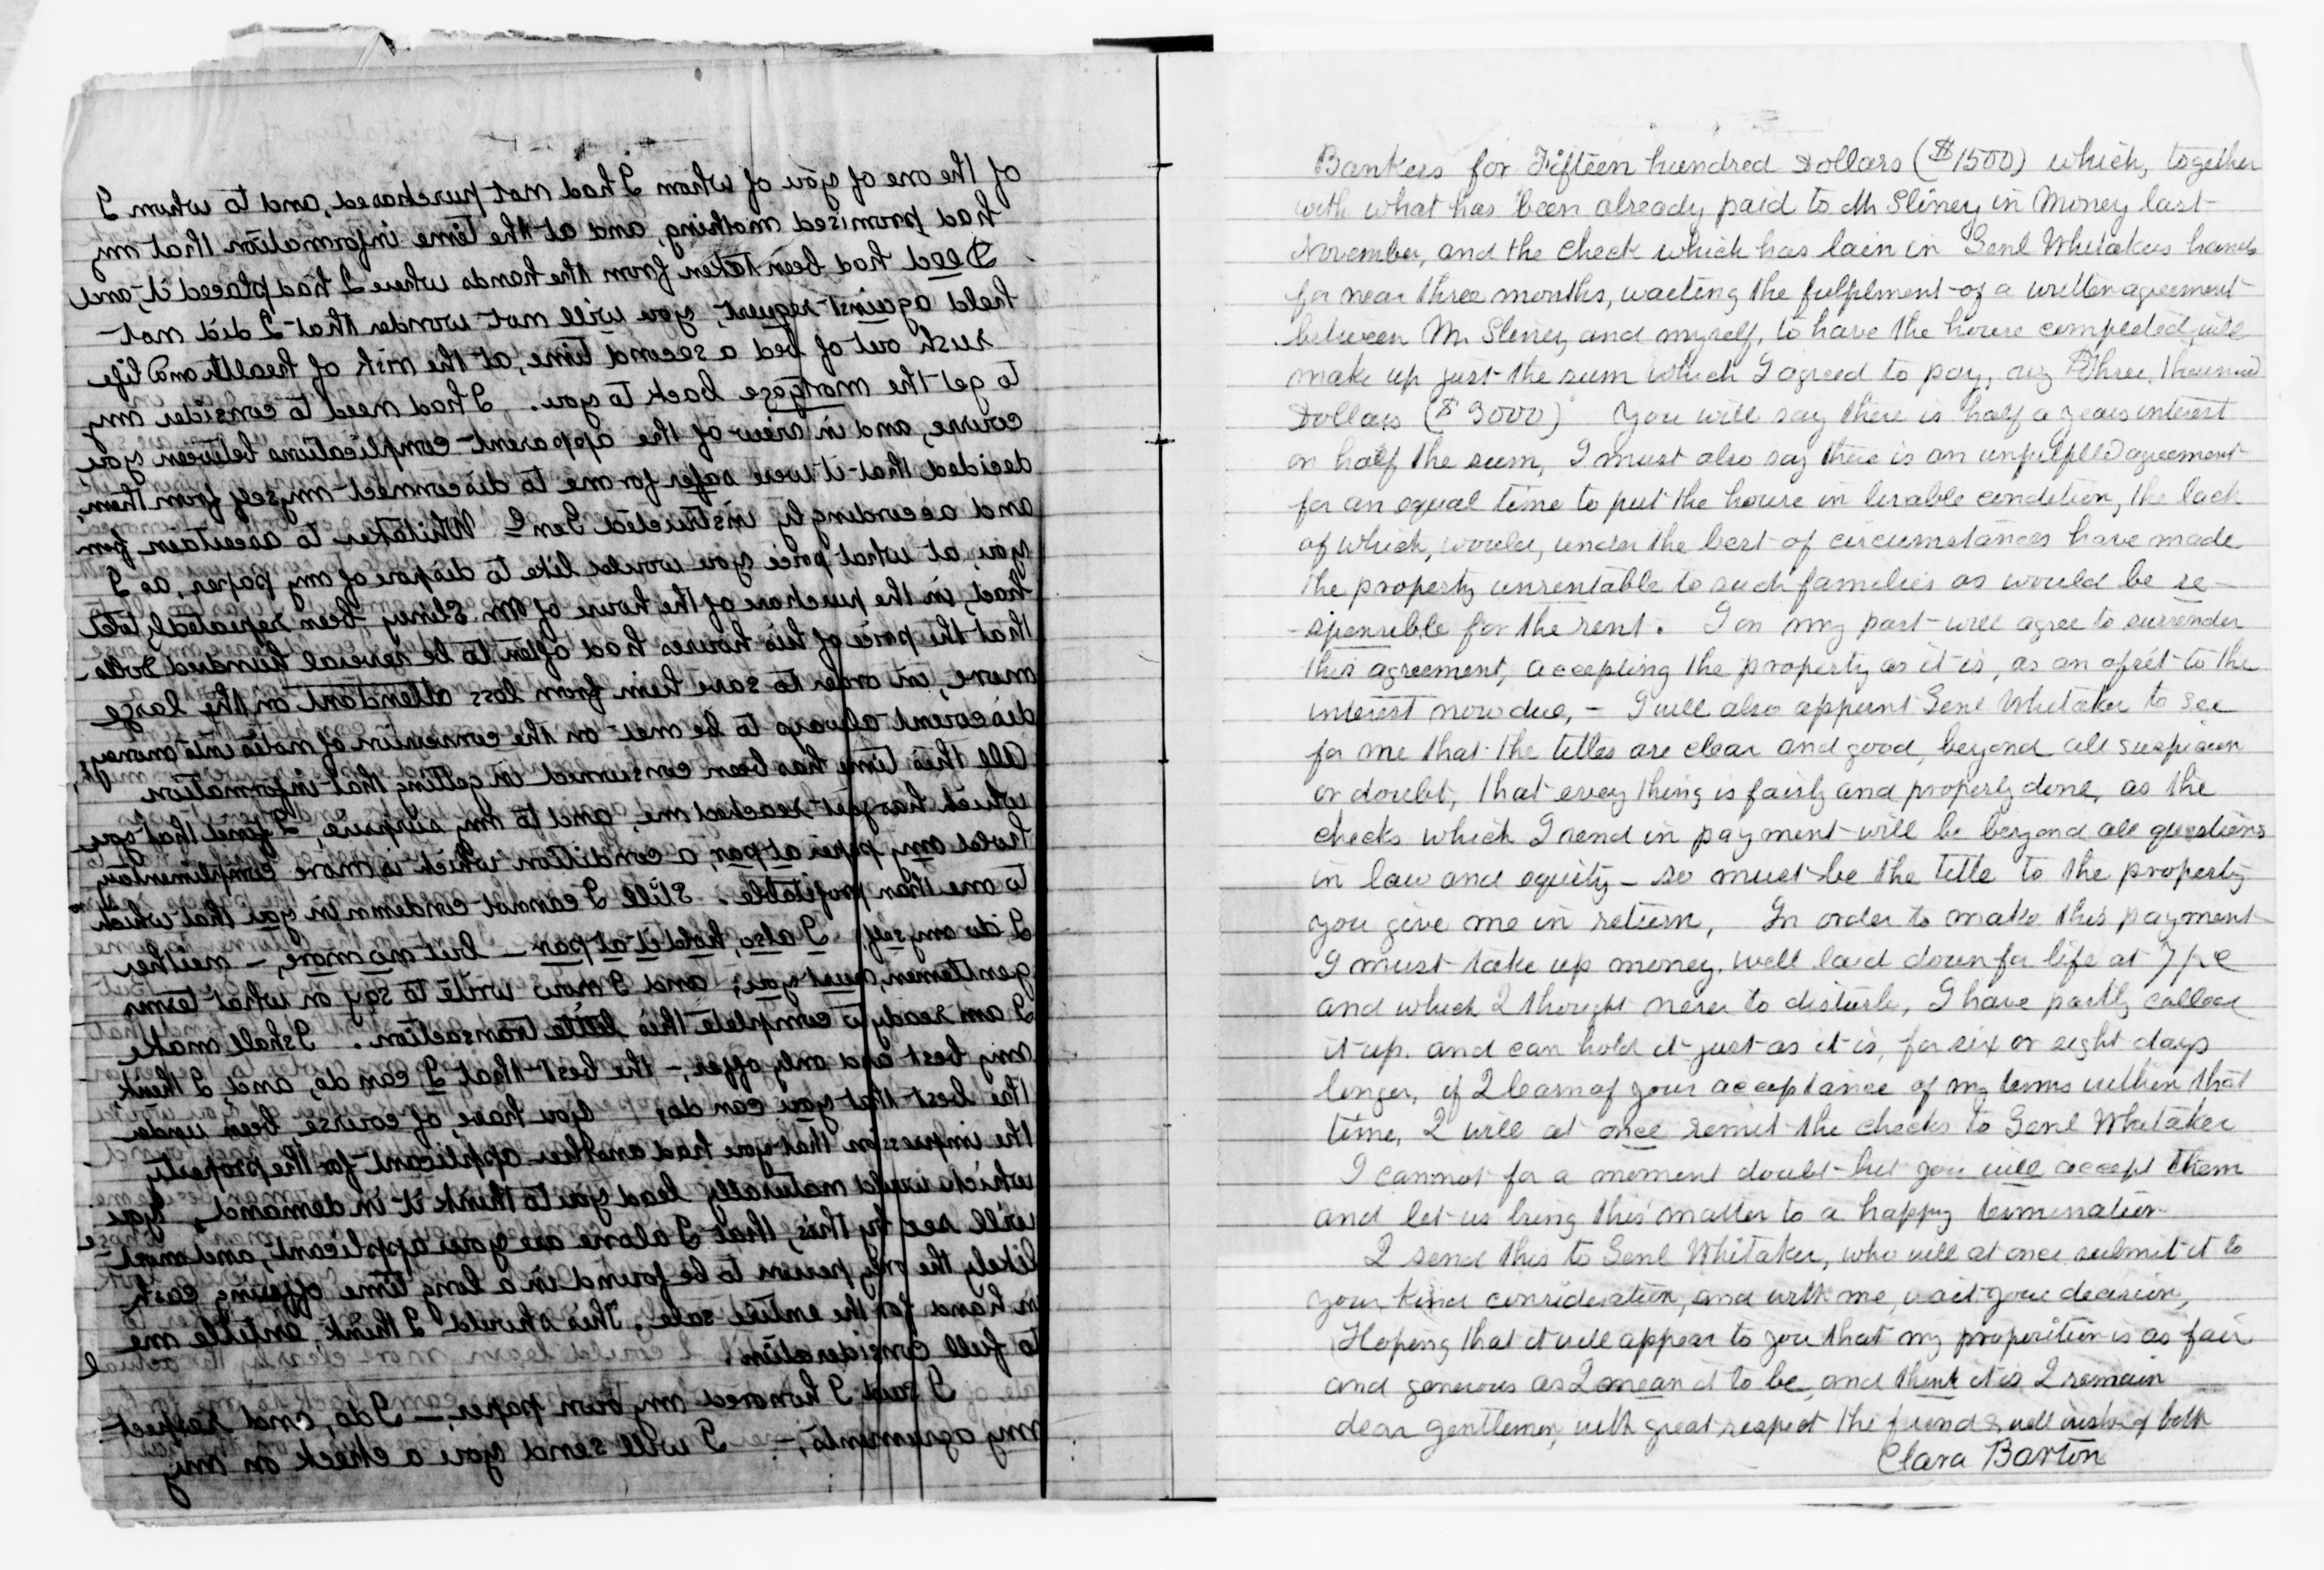 of the one of you of whom I had not purchased, and to whom I
had promised nothing, and at the time information that my
Deed had been taken from the hands where I had placed it, and
held against request, you will not wonder that I did not
rush out of bed a second time, at the risk of health and life
to get the mortgage back to you. I had need to consider my
course, and in view of the apparent complications between you,
decided that it were safer for me to disconnect myself from them,
and accordingly instructed Genl Whitaker to ascertain from
you, at what price you would like to dispose of my paper, as I
had, in the purchase of the house of Mr Sliney been repeatedly told
that the price of his houses had often to be several hundred dolls
more, in order to save him from loss attendant on the large
discount always to be met on the conversion of notes into money,
All this time has been consumed in getting that information
which has just reached me, and to my surprise, I find that you
hold my paper at par, a condition which is more complimentary
to me than profitable. Still I cannot condemn in you that which
I do myself, I also, hold it at par – but no more, – neither
gentlemen, must you, and I now write to say on what terms
I am ready to complete this little transaction. I shall make
my best and only offer, – the best that I can do, and, I think
the best that you can do, You have, of course, been under
the impression that you had another applicant for the property
which would naturally lead you to think it in demand, You
will see by this, that I alone are your applicant, and most
likely the only person to be found in a long time offering cash
in hand for the entire sale. This should I think entitle me
to full consideration.
I said I honored my own paper, – I do, and respect
my agreements, – I will send you a check on my
Bankers for Fifteen hundred Dollars ($1500) which, together
with what has been already paid to Mr Sliney in Money last
November, and the check which has lain in Genl Whitakers hands
for near three months, waiting the fulfilment of a written agreement
between Mr. Sliney and myself, to have the house completed will
make up just the sum which I agreed to pay, viz Three thousand
Dollars ($3000) You will say there is half a years interest
on half the sum, I must also say there is an unfulfilled agreement
for an equal time to put the house in livable condition, the lack
of which, would, under the best of circumstances have made
the property unrentable to such families as would be re-
-sponsible for the rent. I on my part will agree to surrender
this agreement, accepting the property as it is, as an offset to the
interest now due, – I will also appoint Genl Whitaker to see
for me that the titles are clear and good, beyond all suspicion
or doubt, that every thing is fairly and properly done, as the
checks which I send in payment will be beyond all questions
in law and equity – so must be the title to the property
you give me in return, In order to make this payment
I must take up money, well laid down for life at 7 pc
and which I thought never to disturb, I have partly called
it up. and can hold it just as it is, for six or eight days
longer, if I learn of your acceptance of my terms within that
time, I will at once remit the checks to Genl Whitaker
I cannot for a moment doubt but you will accept them
and let us bring this matter to a happy termination
I send this to Genl Whitaker, who will at once submit it to
your kind consideration, and with me, wait your decision,
Hoping that it will appear to you that my proposition is as fair
and generous as I mean it to be, and think it is I remain
dear gentlemen, with great respect the friend & well wisher of both
Clara Barton